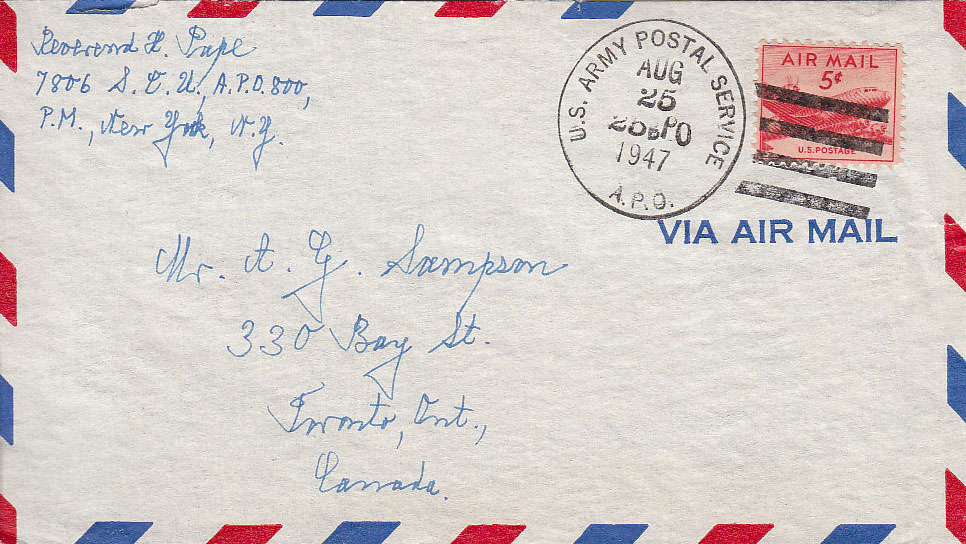 Reverend H. Pape
7806 S.C.U., A.P.O. 800,
P.M., New York, N.Y.
U.S. ARMY POSTAL SERVICE
AUG
25
1947
A.P.O.
AIR MAIL
5¢
U.S. POSTAGE
VIA AIR MAIL
Mr. A. G. Sampson
330 Bay St.
Toronto, Ont.,
Canada.